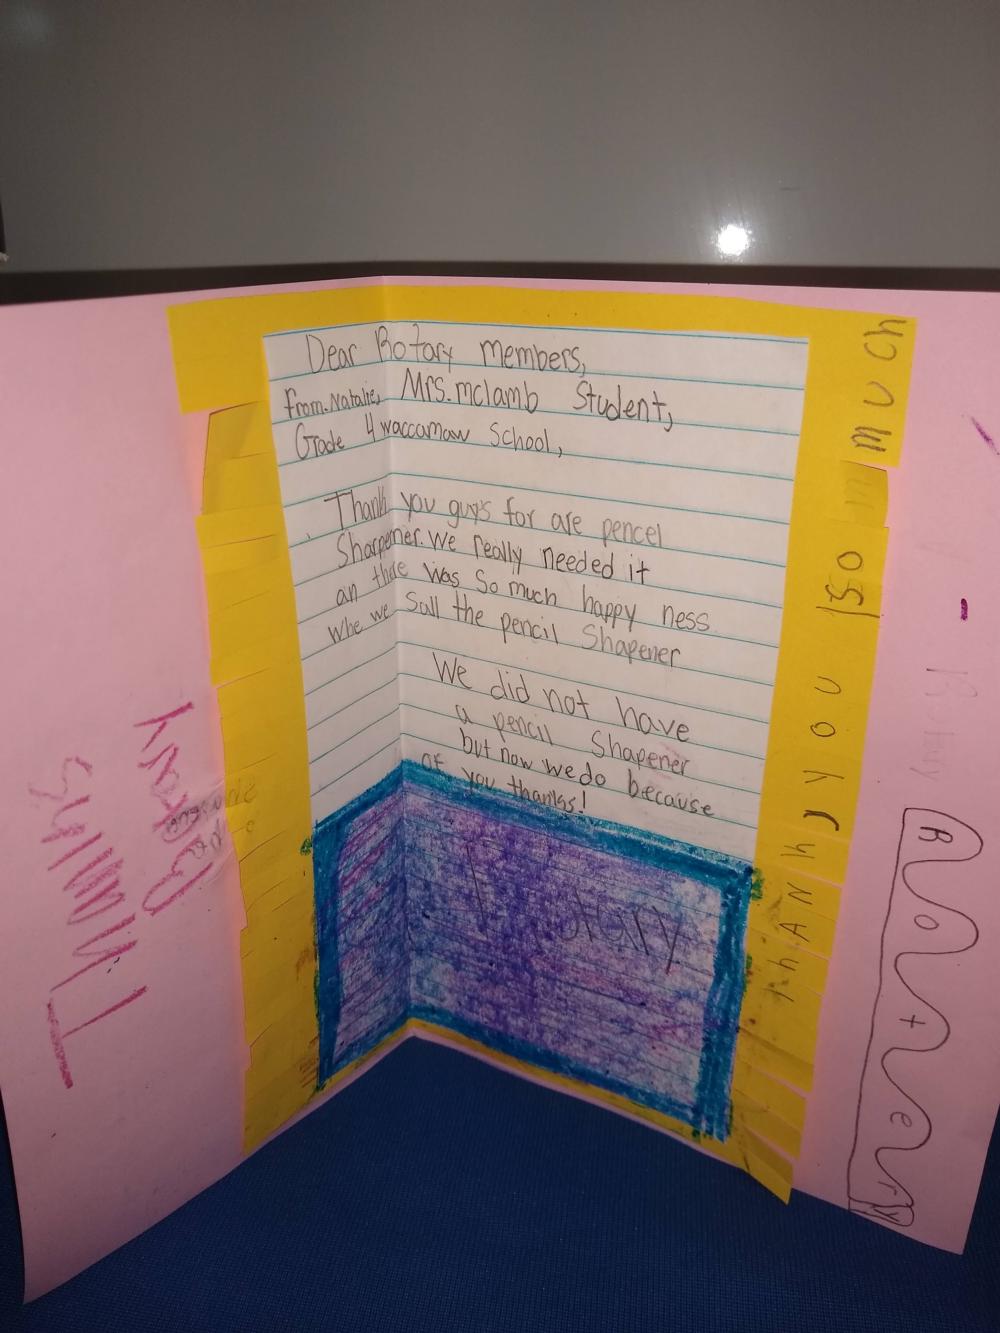 Dear Rotary members,
from. Natalie, Mrs. mclamb Student,
Grade 4 waccamaw School,
Thank you guys for are pencel
Sharpener. We really needed it
an thre was so much happy ness
whe we Sall the pencil Shapener
We did not have
a pencil Shapener
but now we do because
of you thanks!
Rotary
thANk you so muCh
Rotary